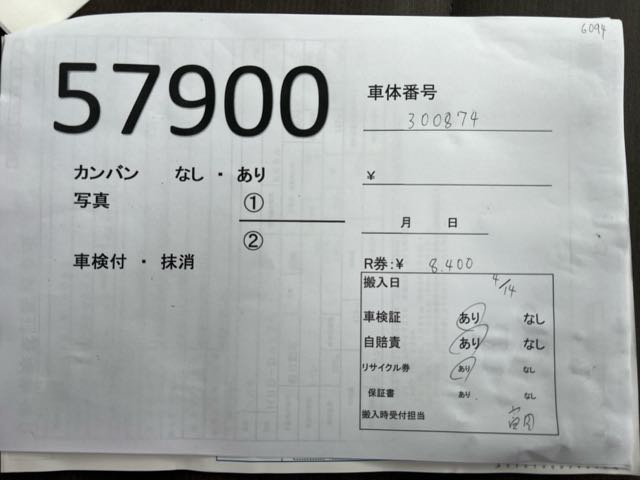 6094
57900
車体番号
300874
カンバン なし ・ あり
¥
写真 ①
②
月 日
車検付 ・ 抹消
R券:¥ 8,400
搬入日 4/14
車検証 あり なし
自賠責 あり なし
リサイクル券 あり なし
保証書 あり なし
搬入時受付担当